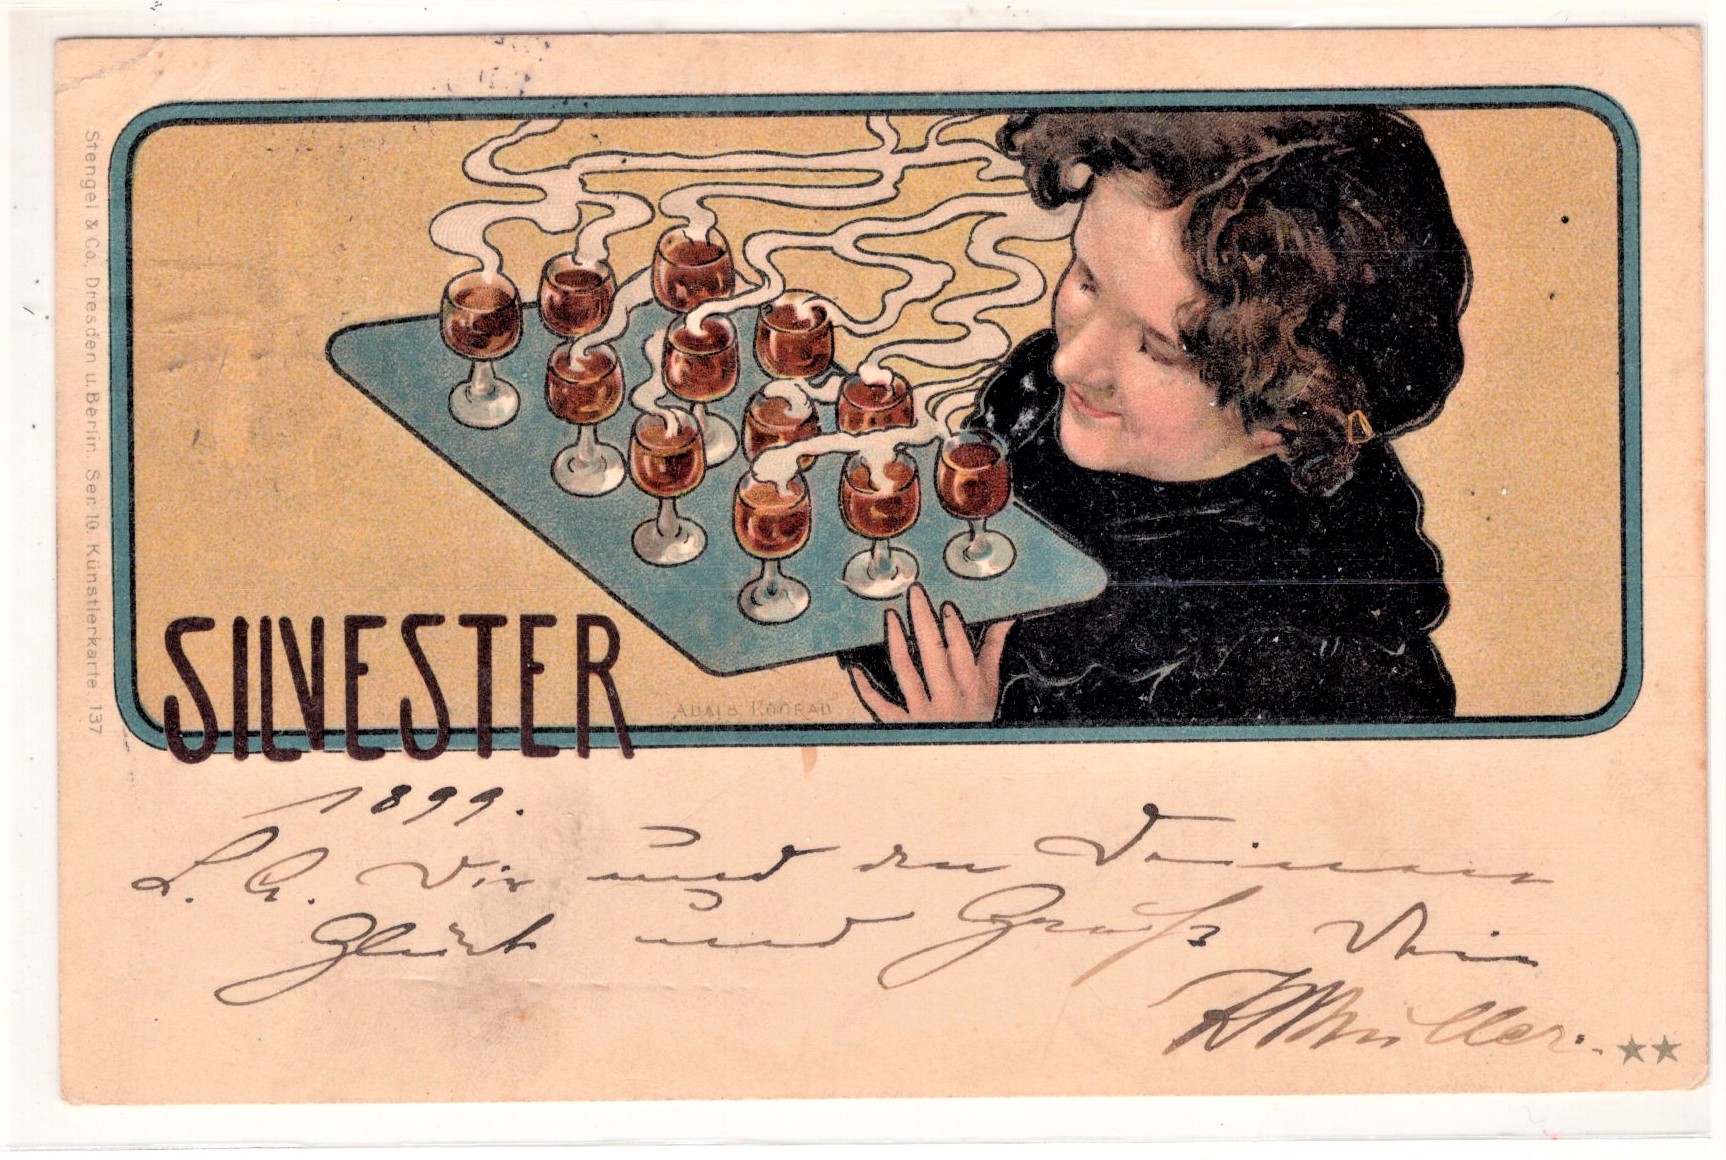 Stengel & Co., Dresden u. Berlin. Ser. 10. Künstlerkarte 137
SILVESTER
ADALB KONRAD
1899.
L. G. Dir und den Deinen
Glück und Gruß Dein
Müller.